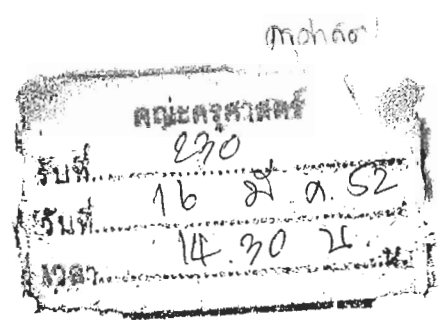 คณะครุศาสตร์
รับที่ 230
วันที่ 16 มี.ค. 52
เวลา 14.30 น.